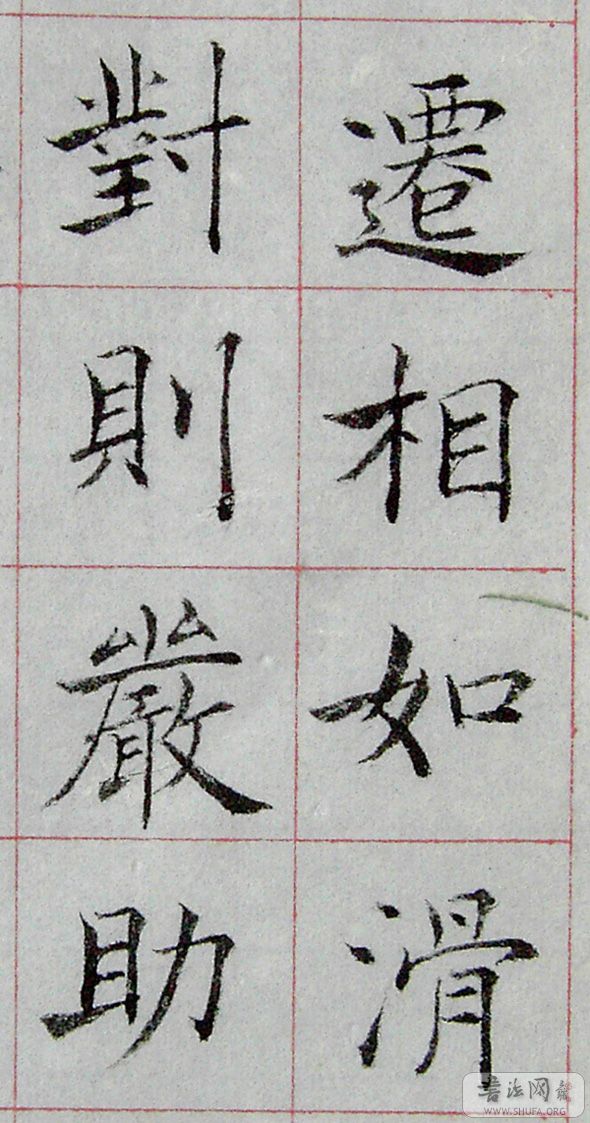 遷相如滑
對則嚴助
書法网
WWW.SHUFA.ORG